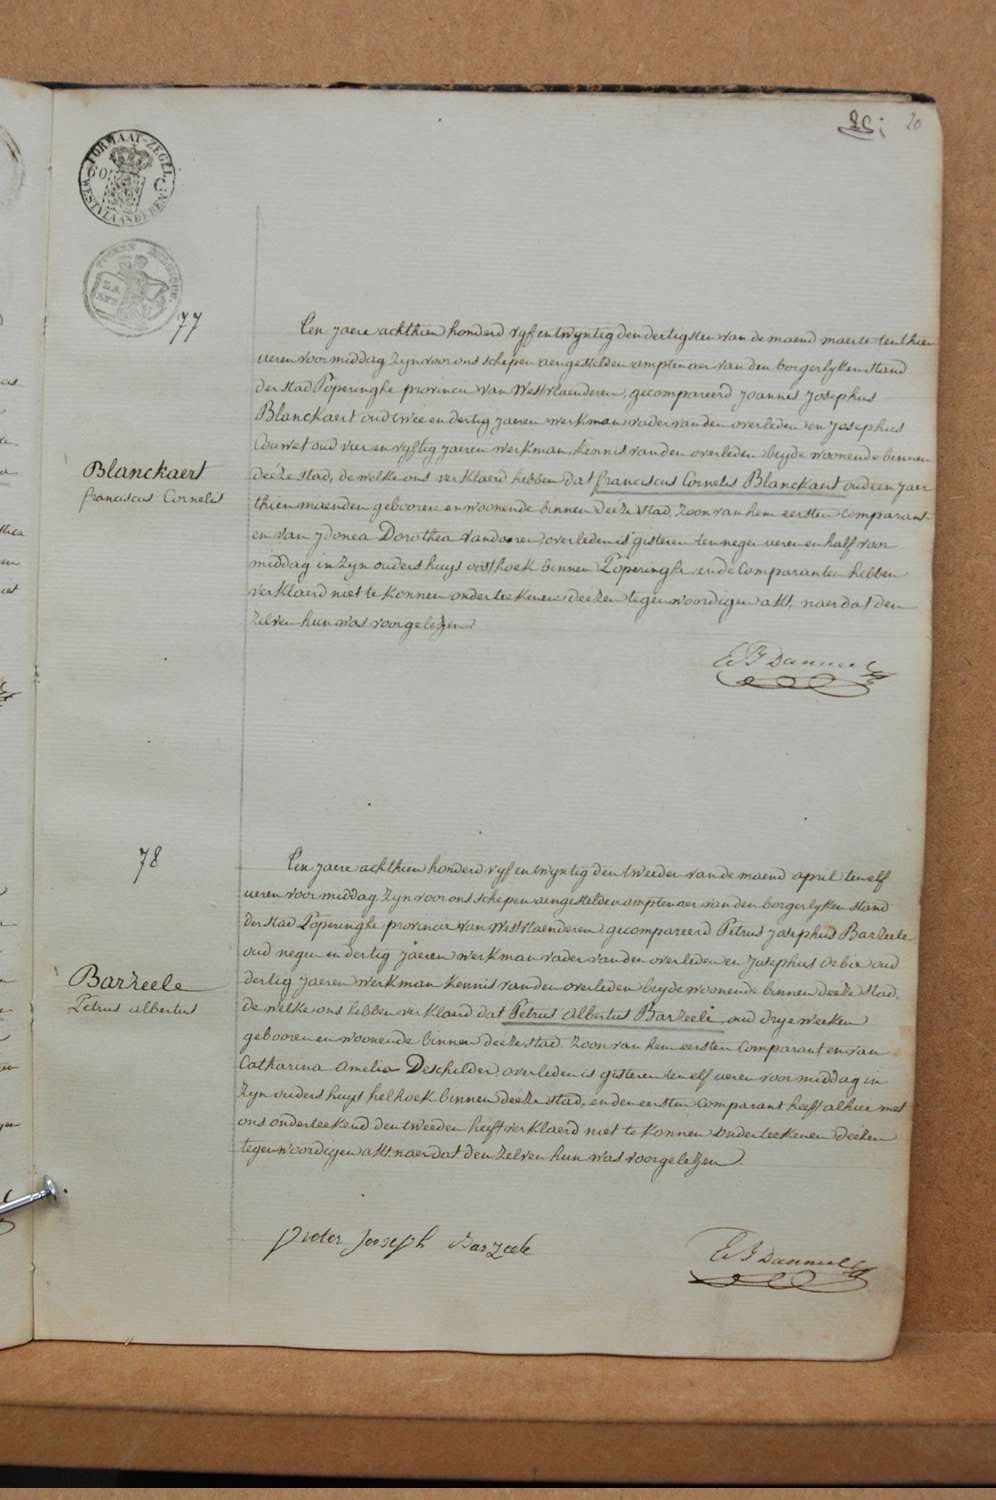 20
FORMAAT-ZEGEL
WESTVLAANDEREN
77
Ten jaere achthien honderd vyf en twyntig den dertigsten van de maend maerte ten thien
ueren voormiddag zyn voor ons schepen aengestelden amptenaer van den borgerlyken stand
der stad Poperinghe provincie van Westvlaenderen, gecompareerd Joannes Josephus
Blanckaert oud twee en dertig jaeren werkman vader van den overleden en Josephus
Couvet oud vier en vyftig jaeren werkman, kennis van den overleden beyde woonende binnen
deéze stad, de welke ons verklaerd hebben dat franciscus Cornelis Blanckaert oud een jaer
thien maenden gebooren en woonende binnen deéze stad zoon van hem eersten comparant
en van ydonea Dorothea vandooren, overleden is gisteren ten neger ueren en half voor
middag in zyn ouders huys oosthoek binnen Poperinghe en de Comparanten hebben
verklaerd niet te konnen onderteekenen deézen tegenwoordigen akt, naer dat den
zelven hun was voorgelezen.
Blanckaert
franciscus Cornelis
78
Ten jaere achthien honderd vyf en twyntig den tweeden van de maend april ten elf
ueren voormiddag zyn voor ons schepen aengestelden amptenaer van den borgerlyken stand
der stad Poperinghe provincie van Westvlaenderen gecompareerd Petrus Josephus Barzeele
oud negen en dertig jaeren werkman vader van den overleden en Josephus Debie oud
dertig jaeren werkman kennis van den overleden beyde woonende binnen deéze stad,
de welke ons hebben verklaerd dat Petrus albertus Barzeele oud drye weeken
gebooren en woonende binnen deéze stad zoon van hem eersten Comparant en van
Catharina Amelia Deschilder, overleden is gisteren ten elf ueren voormiddag in
zyn ouders huys helhoek binnen deéze stad, en den eersten Comparant heeft alhier met
ons onderteekend den tweeden heeft verklaerd niet te konnen onderteekenen deézen
tegenwoordigen akt, naer dat den zelven hun was voorgelezen.
Barzeele
Petrus albertus
Pieter Joseph Barzeele